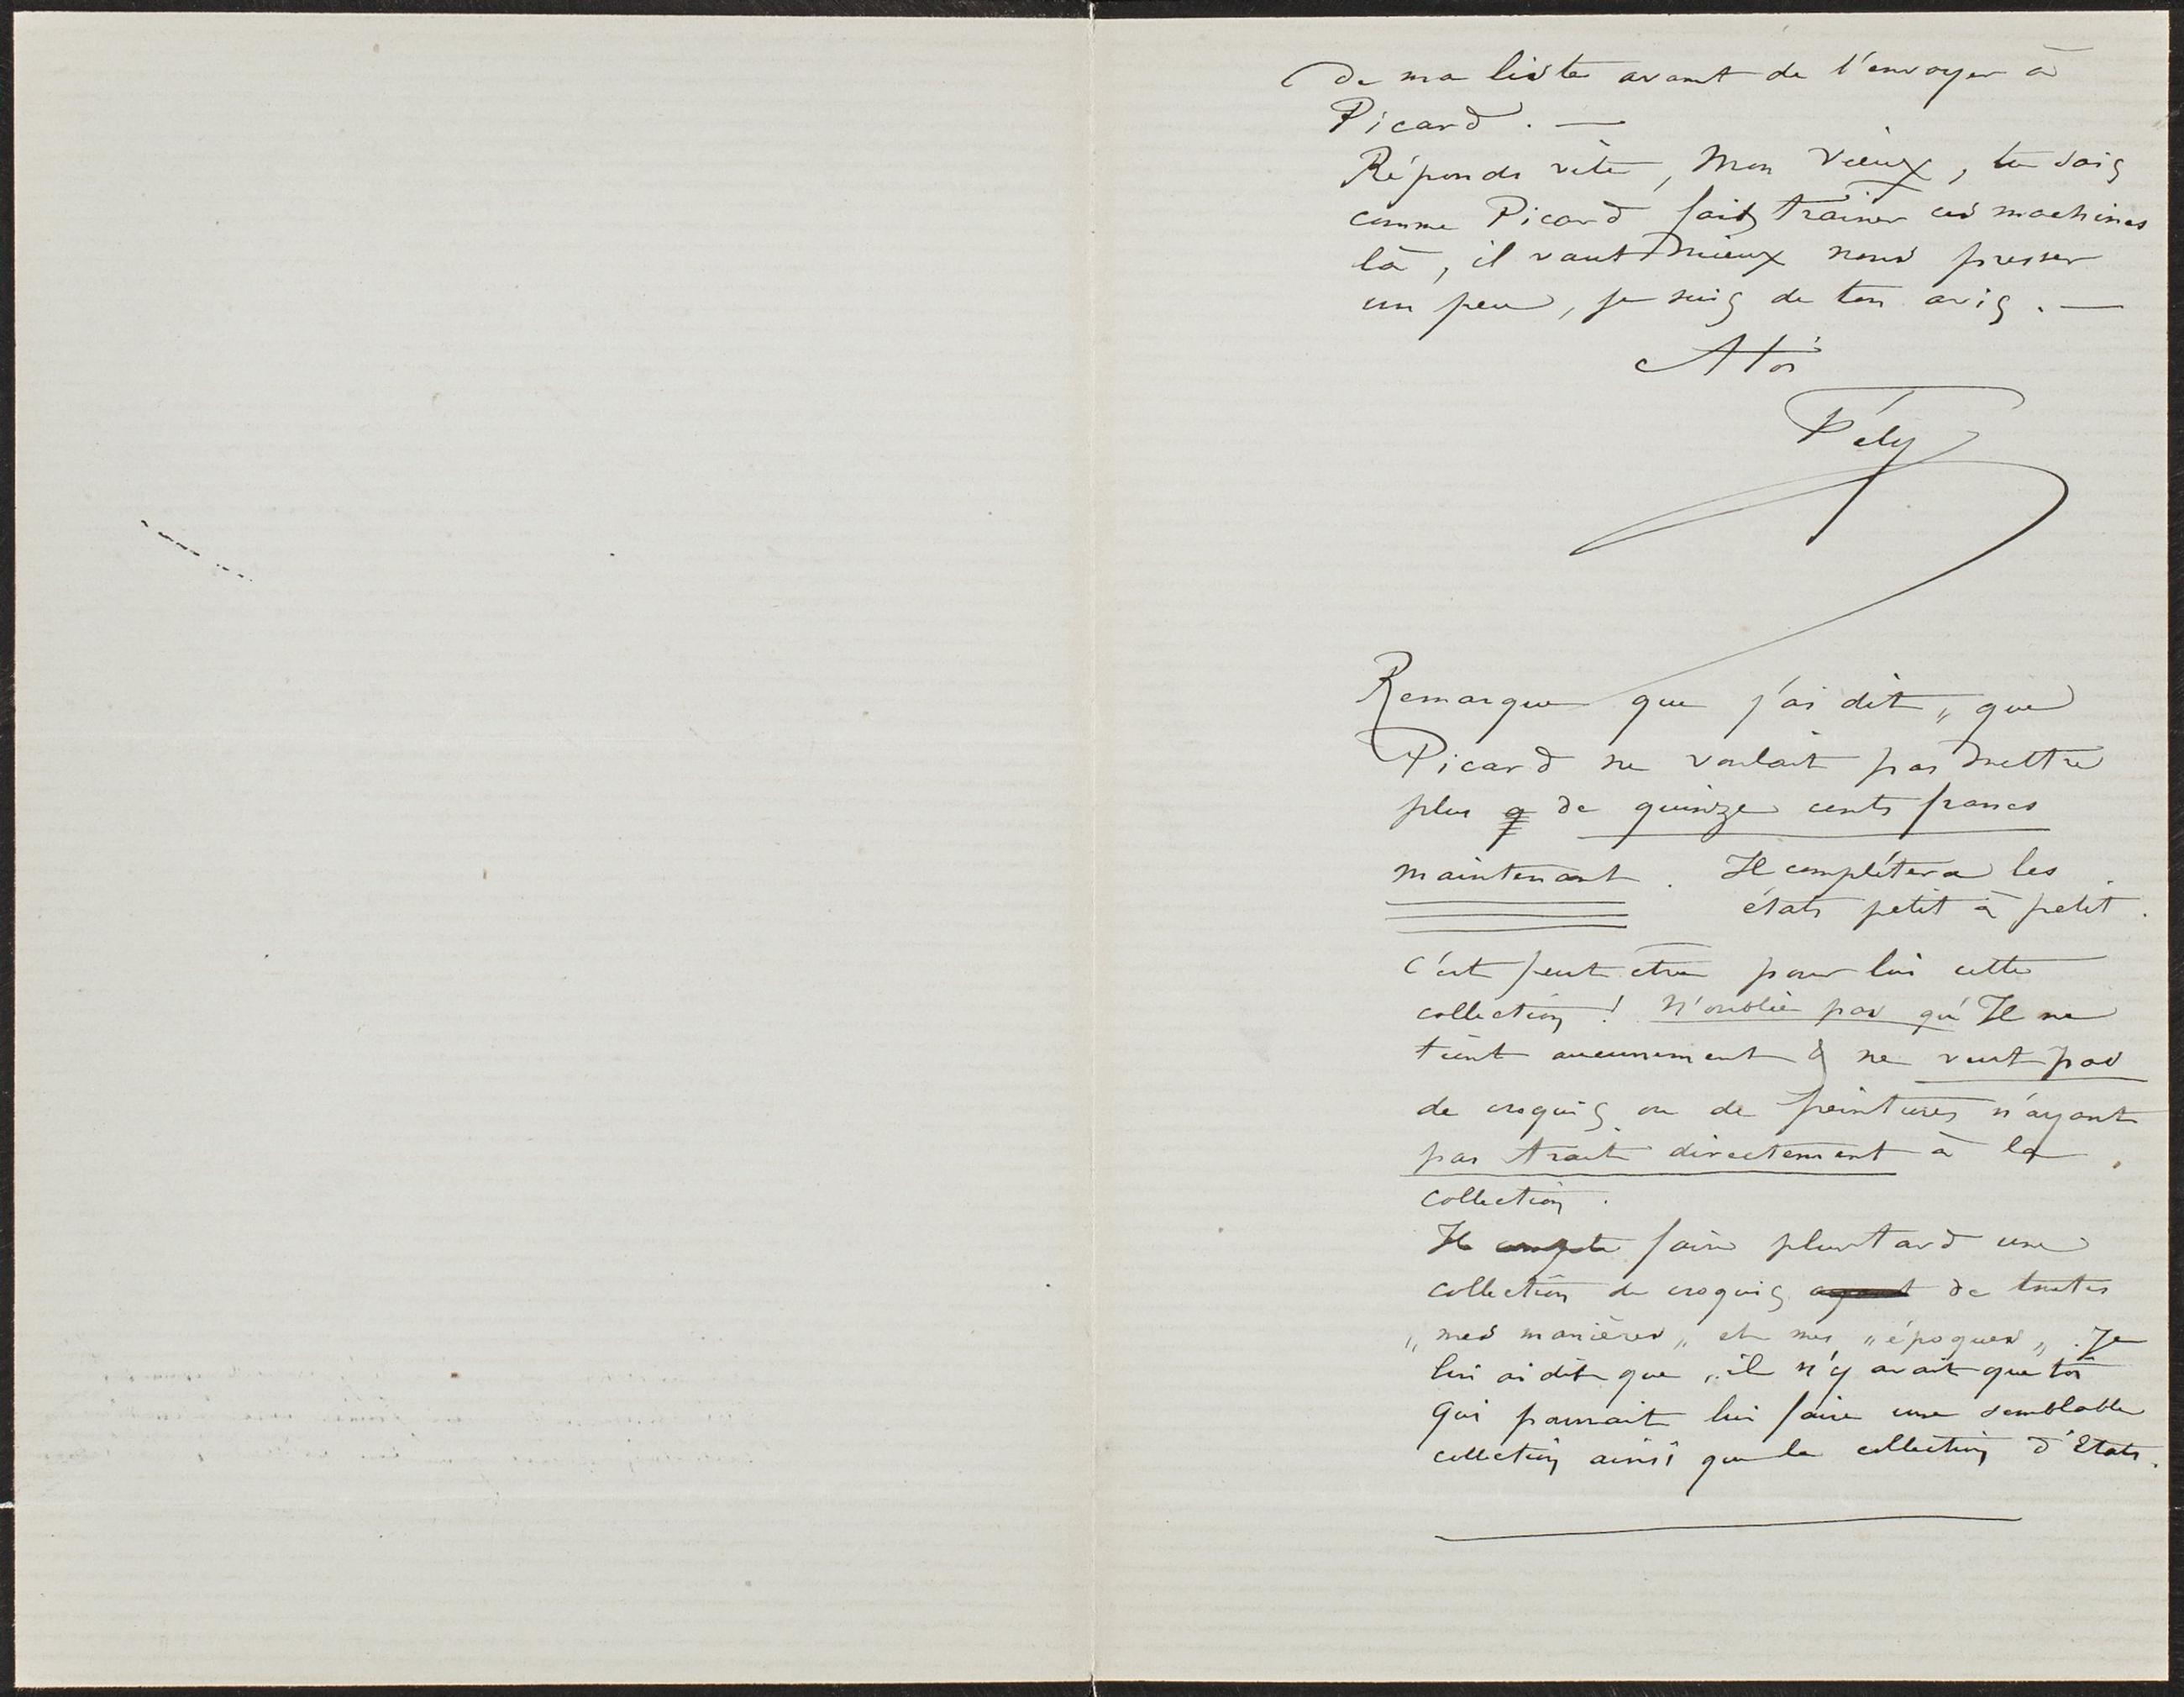 de ma liste avant de l'envoyer à
Picard. —
Réponds vite, Mon Vieux, tu sais
comme Picard fait trainer ces machines
là, il vaut mieux nous presser
un peu, je suis de ton avis. —
A toi
Fély
Remarque que j'ai dit „ que
Picard ne voulait pas mettre
plus q de quinze cents francs
maintenant. Il complétera les
états petit à petit.
C'est peut etre pour lui cette
collection! N'oublie pas qu'Il ne
tient aucunement & ne veut pas
de croquis ou de peintures n'ayant
pas trait directement à la
collection.
Il compte faire plus tard une
collection de croquis ayant de toutes
„ mes manières „ et mes „ époques „. Je
lui ai dit que „ il n'y avait que toi
qui pourrait lui faire une semblable
collection ainsi que la collection d'Etats.